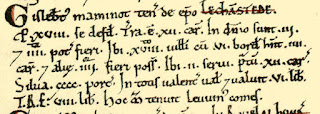 Gislebt' maminot ten' de epo LECHASTEDE.
p xviii. se defd'. Tra. ē. xv. car'. In dnio sunt. iii.
7 iiii. pot' fieri. Ibi. xviii. uilli cū. vi. bord' hnt.
car'. 7 aliæ. iiii. fieri poss'. Ibi. ii. serui. ptū. xv. car'.
Silua. cccc. porc'. In totis ualent' ual' 7 ualuit. vi. lib'.
T.R.E. viii. lib'. Hoc m tenuit Leuuin' comes.